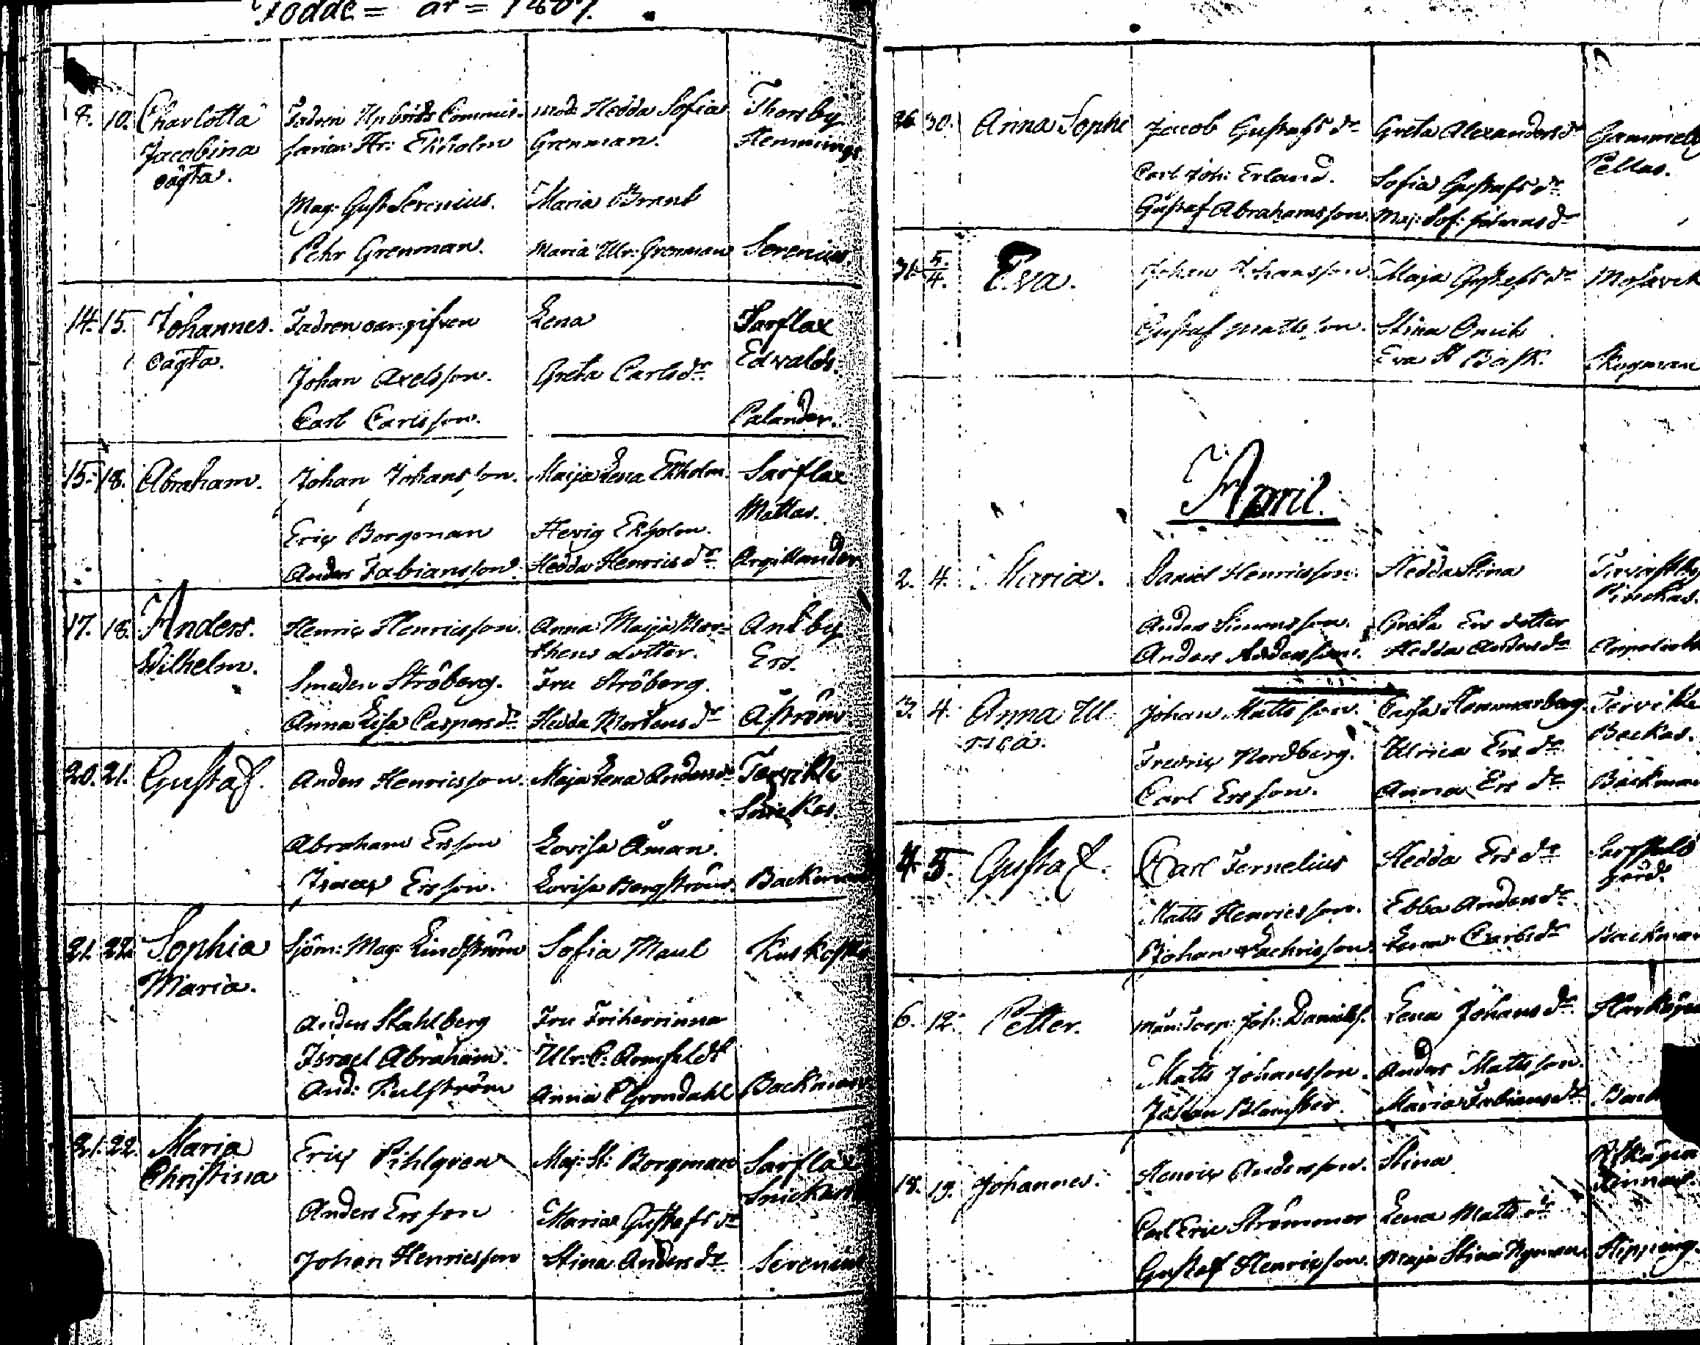 Födde = år = 1807.
8. 10. Charlotta Fadren Commis- mod: Hedda Sofia Thorsby
Jacobina Hr: Ekholm Grenman. Hemmings
oägta.
Mag: Gust. Serenius. Maria Brant
Pehr Grenman. Maria Ulr: Grenman Serenius.
14. 15. Johannes. Fadren oangifven Lena Sarflax
oägta. Edvalds.
Johan Axelsson. Greta Carlsdr.
Carl Carlsson. Palander.
15. 18. Abraham. Johan Johansson. Maija Lena Ekholm. Sarflax
Mattas.
Eric Borgman Hevig Ekholm.
Anders Fabiansson. Hedda Henricsdr. Argillander.
17. 18. Anders. Henric Henricsson. Anna Maija Mor- Antby
Wilhelm. thens dotter. Ers.
Smeden Ströberg. Fru Ströberg.
Anna Lisa Caspersdr. Hedda Mortensdr. Åström
20. 21. Gustaf. Anders Henricsson. Maja Lena Andersdr. Tervikle
Snickas.
Abraham Ersson Lovisa Åman.
Ersson. Lovisa Bergström. Backman
21. 22. Sophia Sjöm: Mag: Lindström Sofia Maul Kuskoski
Maria.
Anders Stahlberg Fru Friherrinna
Israel Abraham. Ulr. C. Armfeldt
And: Kulström Anna C Grondahl Backman
21. 22. Maria Eric Pihlgren Maj: St: Borgman Sarflax
Christina Snickars
Anders Ersson Maria Gustafsdr
Johan Henricsson Stina Andersdr. Serenius
26. 30. Anna Sophi Jacob Gustafsdr Greta Alexandersdr Gammelby
Carl Joh: Erland. Sofia Gustafsdr Pellas.
Gustaf Abrahamsson. Maj: Sof: Johansdr
31. 5/4. Eva. Johan Johansson. Maja Gustafsdr
Gustaf Mattsson. Stina
Eva St Bask. Skogman
April.
2. 4. Maria. Daniel Henricsson. Hedda Stina
Anders Simonsson. Greta Ers dotter
Anders Andersson. Hedda Andersdr
3. 4. Anna Ul- Johan Mattsson. Caisa Hammarberg. Tervikle
rica. Backas.
Fredric Nordberg. Ulrica Ersdr
Carl Ersson. Anna Ersdr Backman
4. 5. Gustaf. Carl Fernelius Hedda Ersdr
gård.
Matts Henricsson. Ebba Andersdr.
Johan Zachrisson. Lena Carlsdr Backman
6. 12. Petter. Joh: Daniels. Lena Johansdr.
Matts Johansson. Anders Mattsson.
Johan Blomster. Maria Fabiansdr. Back
18. 19. Johannes. Henric Andersson. Stina
Carl Eric Strömmer Lena Mattsdr
Gustaf Henricsson. Maja Stina Nyman